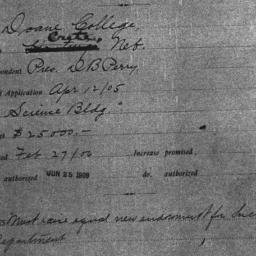 Doane College,
Crete, Neb.
pondent Pres. D B Perry
Application Apr 12/05
Science Bldg"
$ 25000.-
Feb 27/06 Increase promised,
authorized JUN 25 1909 do. authorized
Must raise equal new endowment for Science
Department